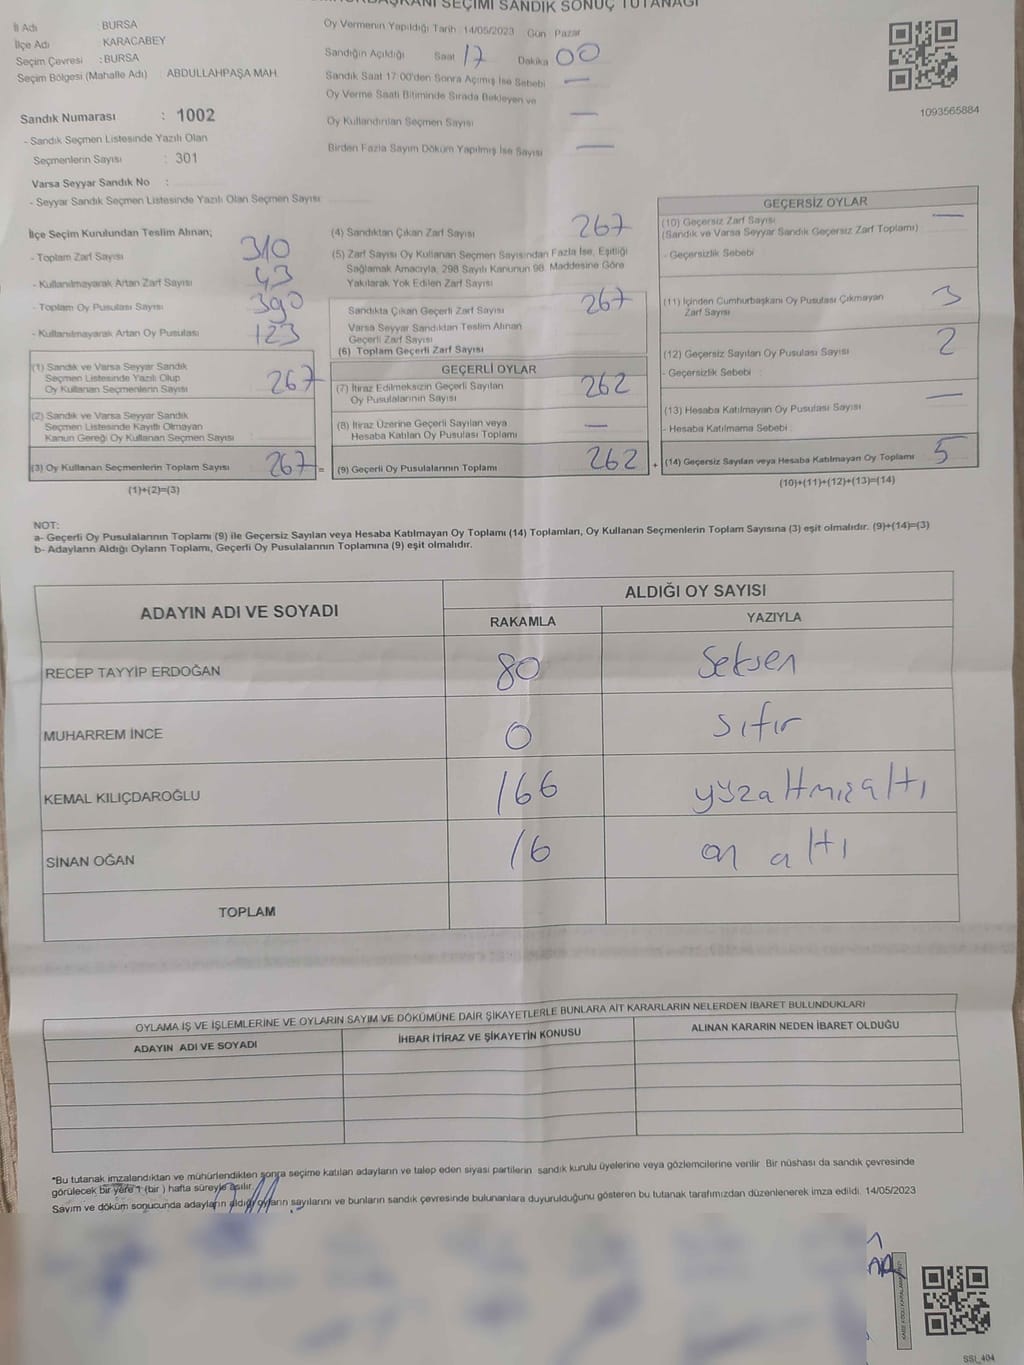 SEÇİMİ SANDIK SONUÇ TUTANAĞI
İl Adı : BURSA
İlçe Adı : KARACABEY
Seçim Çevresi : BURSA
Seçim Bölgesi (Mahalle Adı) : ABDULLAHPAŞA MAH.
Sandık Numarası : 1002
- Sandık Seçmen Listesinde Yazılı Olan
Seçmenlerin Sayısı : 301
Varsa Seyyar Sandık No :
- Seyyar Sandık Seçmen Listesinde Yazılı Olan Seçmen Sayısı
Oy Vermenin Yapıldığı Tarih : 14/05/2023 Gün Pazar
Sandığın Açıldığı Saat 17 Dakika 00
Sandık Saat 17:00'den Sonra Açımış İse Sebebi —
Oy Verme Saati Bitiminde Sırada Bekleyen ve
Oy Kullandırılan Seçmen Sayısı —
Birden Fazla Sayım Döküm Yapılmış İse Sayısı —
1093565884
İlçe Seçim Kurulundan Teslim Alınan;
- Toplam Zarf Sayısı 310
- Kullanılmayarak Artan Zarf Sayısı 43
- Toplam Oy Pusulası Sayısı 390
- Kullanılmayarak Artan Oy Pusulası 123
(1) Sandık ve Varsa Seyyar Sandık
Seçmen Listesinde Yazılı Olup
Oy Kullanan Seçmenlerin Sayısı 267
(2) Sandık ve Varsa Seyyar Sandık
Seçmen Listesinde Kayıtlı Olmayan
Kanun Gereği Oy Kullanan Seçmen Sayısı :
(3) Oy Kullanan Seçmenlerin Toplam Sayısı 267 =
(1)+(2)=(3)
(4) Sandıktan Çıkan Zarf Sayısı 267
(5) Zarf Sayısı Oy Kullanan Seçmen Sayısından Fazla İse, Eşitliği
Sağlamak Amacıyla, 298 Sayılı Kanunun 98. Maddesine Göre
Yakılarak Yok Edilen Zarf Sayısı
Sandıkta Çıkan Geçerli Zarf Sayısı 267
Varsa Seyyar Sandıktan Teslim Alınan
Geçerli Zarf Sayısı
(6) Toplam Geçerli Zarf Sayısı
GEÇERLİ OYLAR
(7) İtiraz Edilmeksizin Geçerli Sayılan
Oy Pusulalarının Sayısı 262
(8) İtiraz Üzerine Geçerli Sayılan veya
Hesaba Katılan Oy Pusulası Toplamı —
(9) Geçerli Oy Pusulalarının Toplamı 262 +
GEÇERSİZ OYLAR
(10) Geçersiz Zarf Sayısı —
(Sandık ve Varsa Seyyar Sandık Geçersiz Zarf Toplamı)
- Geçersizlik Sebebi
(11) İçinden Cumhurbaşkanı Oy Pusulası Çıkmayan
Zarf Sayısı 3
(12) Geçersiz Sayılan Oy Pusulası Sayısı 2
- Geçersizlik Sebebi
(13) Hesaba Katılmayan Oy Pusulası Sayısı —
- Hesaba Katılmama Sebebi
(14) Geçersiz Sayılan veya Hesaba Katılmayan Oy Toplamı 5
(10)+(11)+(12)+(13)=(14)
NOT:
a- Geçerli Oy Pusulalarının Toplamı (9) ile Geçersiz Sayılan veya Hesaba Katılmayan Oy Toplamı (14) Toplamları, Oy Kullanan Seçmenlerin Toplam Sayısına (3) eşit olmalıdır. (9)+(14)=(3)
b- Adayların Aldığı Oyların Toplamı, Geçerli Oy Pusulalarının Toplamına (9) eşit olmalıdır.
ADAYIN ADI VE SOYADI
ALDIĞI OY SAYISI
RAKAMLA YAZIYLA
RECEP TAYYİP ERDOĞAN 80 Seksen
MUHARREM İNCE 0 sıfır
KEMAL KILIÇDAROĞLU 166 yüzaltmışaltı
SİNAN OĞAN 16 on altı
TOPLAM
OYLAMA İŞ VE İŞLEMLERİNE VE OYLARIN SAYIM VE DÖKÜMÜNE DAİR ŞİKAYETLERLE BUNLARA AİT KARARLARIN NELERDEN İBARET BULUNDUKLARI
ADAYIN ADI VE SOYADI İHBAR İTİRAZ VE ŞİKAYETİN KONUSU ALINAN KARARIN NEDEN İBARET OLDUĞU
*Bu tutanak imzalandıktan ve mühürlendikten sonra seçime katılan adayların ve talep eden siyasi partilerin sandık kurulu üyelerine veya gözlemcilerine verilir. Bir nüshası da sandık çevresinde
görülecek bir yere 1 (bir ) hafta süreyle asılır.
Sayım ve döküm sonucunda adayların aldığı oyların sayılarını ve bunların sandık çevresinde bulunanlara duyurulduğunu gösteren bu tutanak tarafımızdan düzenlenerek imza edildi. 14/05/2023
SSI_404